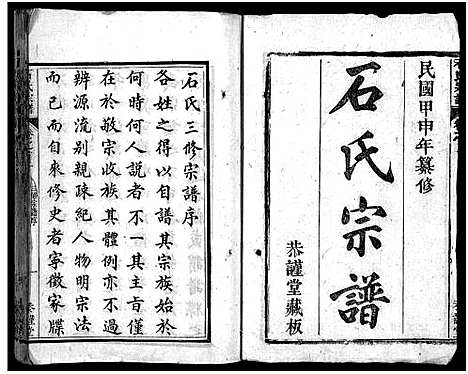 民國甲申年纂修
石氏宗譜
恭謹堂藏板
石氏三修宗譜序
各姓之得以自譜其宗族始於
何時何人說者不一其主旨僅
在於敬宗收族其體例亦不過
辨源流別親疎紀人物明宗法
而已自來修史者寧徵家牒